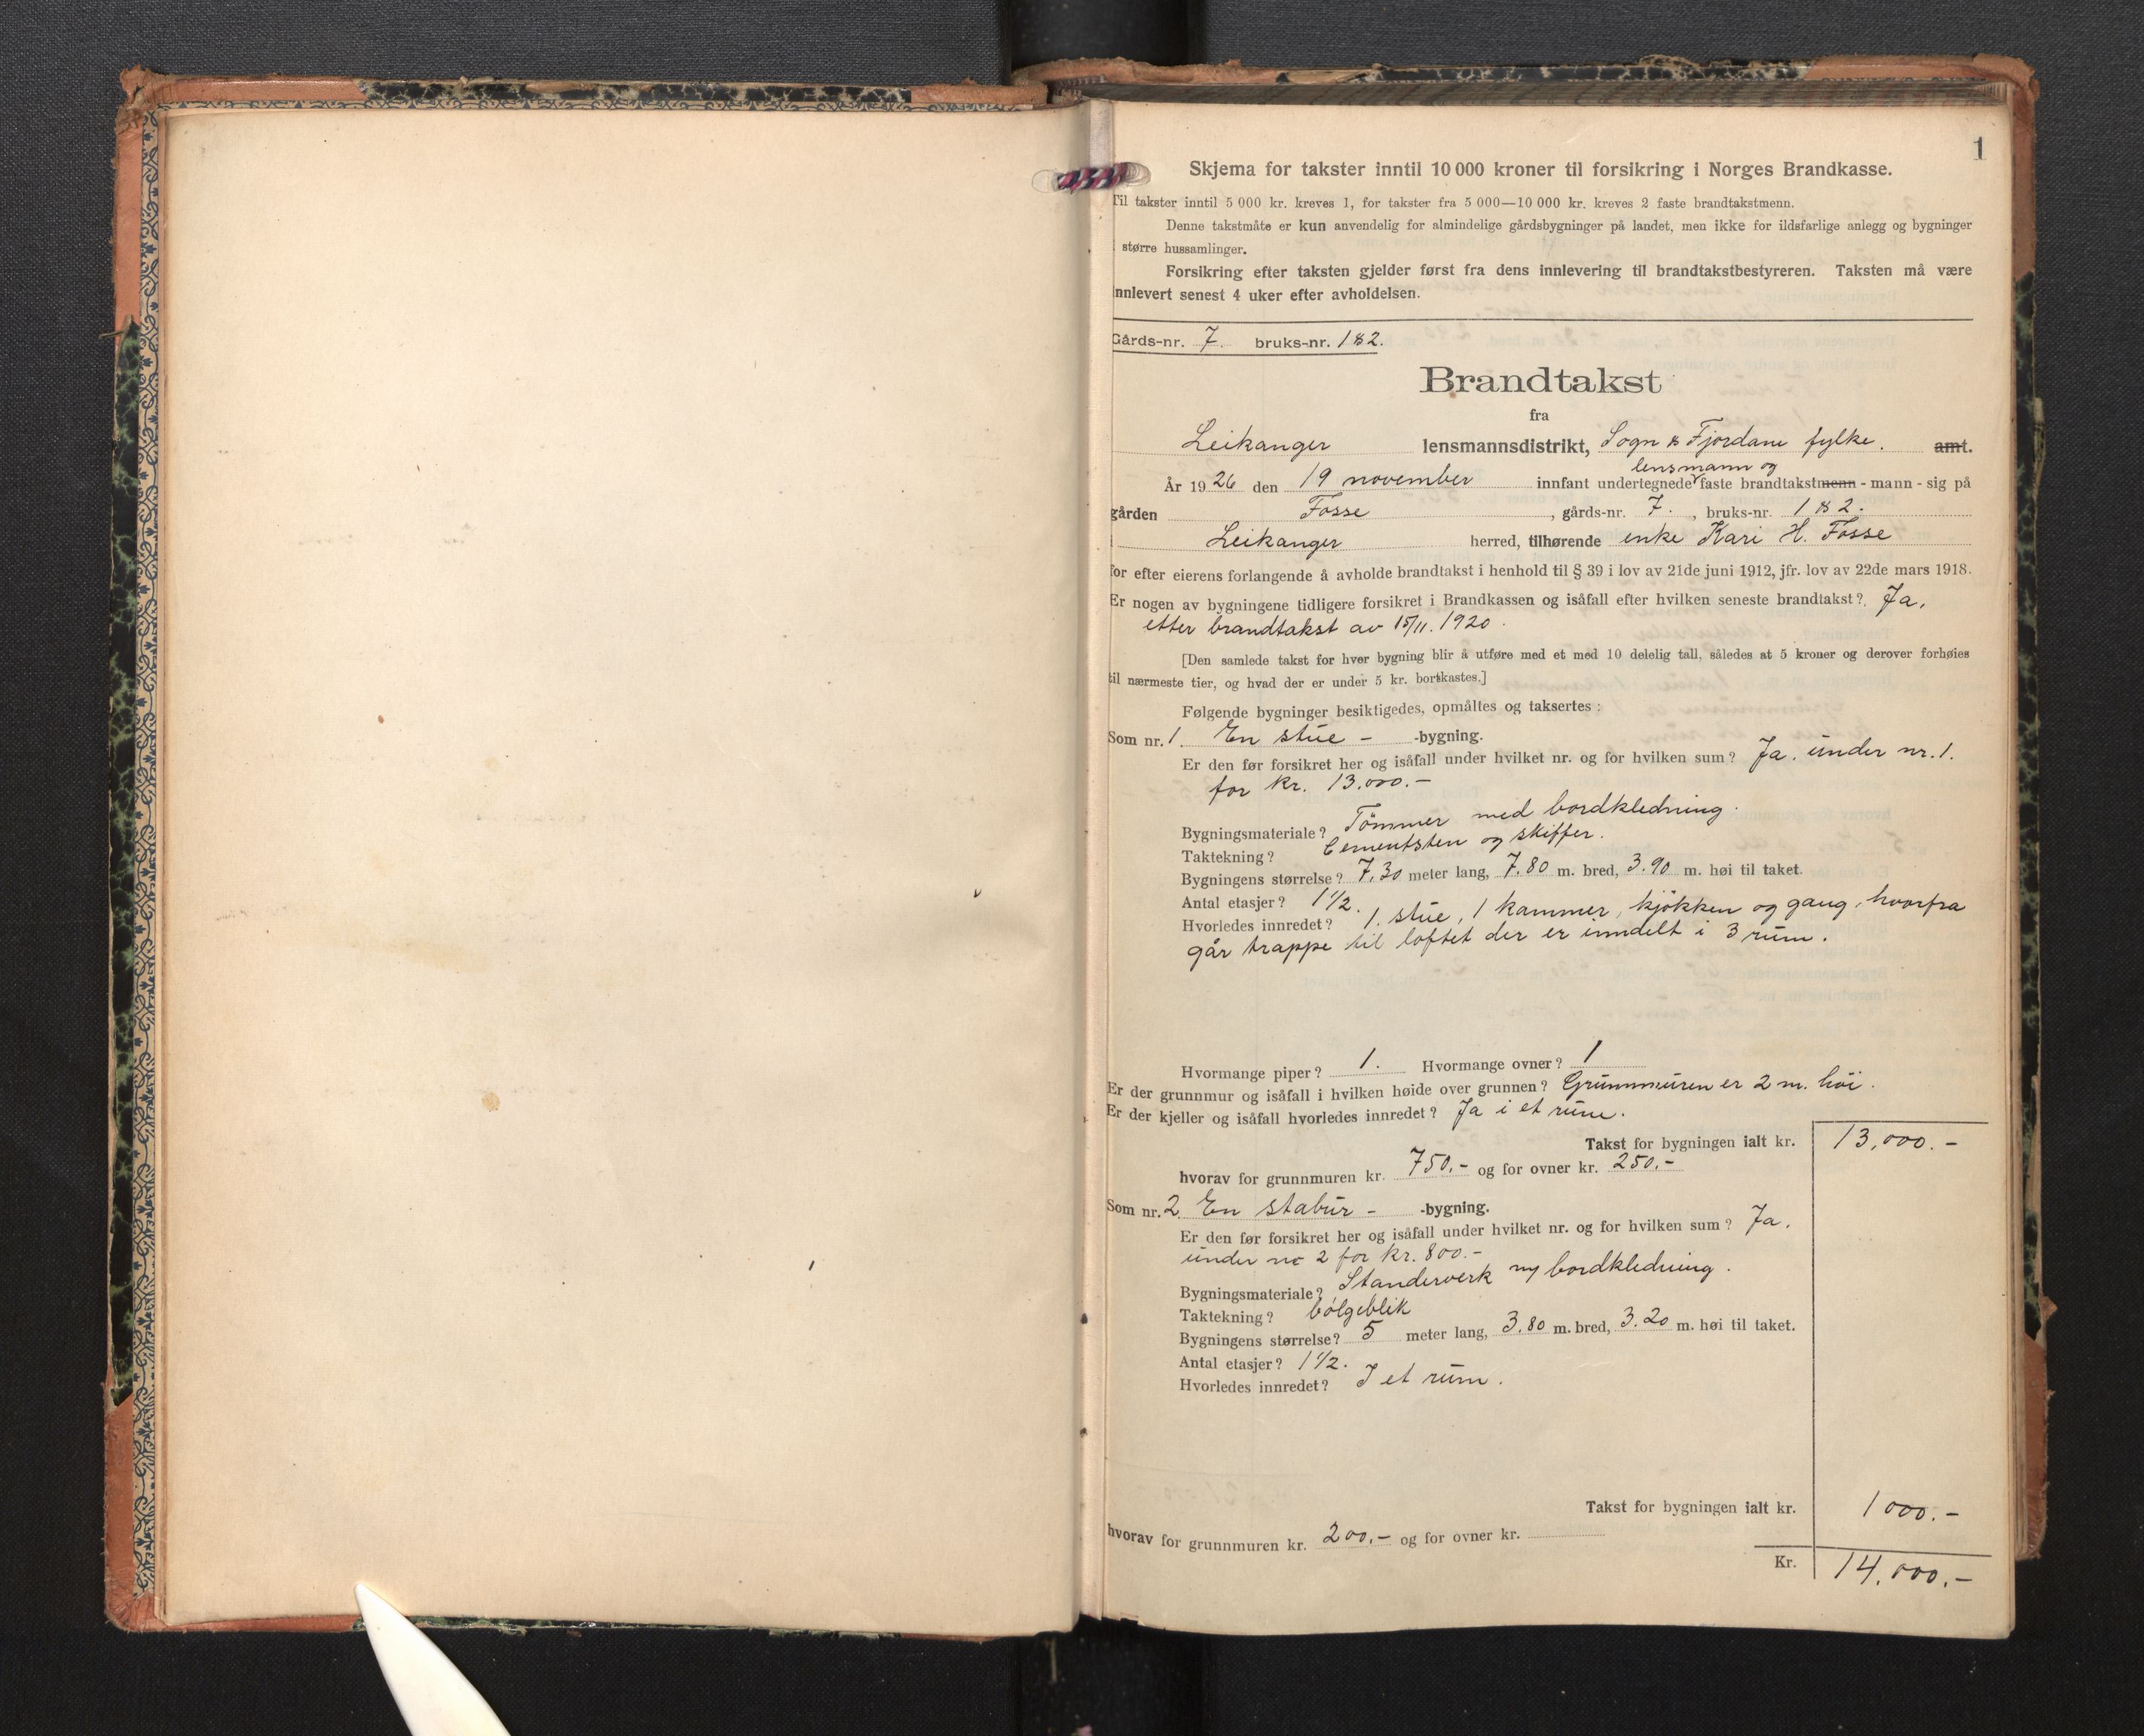 1
Skjema for takster inntil 10 000 kroner til forsikring i Norges Brandkasse.
Til takster inntil 5 000 kr. kreves 1, for takster fra 5 000—10 000 kr. kreves 2 faste brandtakstmenn.
Denne takstmåte er kun anvendelig for almindelige gårdsbygninger på landet, men ikke for ildsfarlige anlegg og bygninger
større hussamlinger.
Forsikring efter taksten gjelder først fra dens innlevering til brandtakstbestyreren. Taksten må være
innlevert senest 4 uker efter avholdelsen.
Gårds-nr. 7. bruks-nr. 1 & 2.
Brandtakst
fra
Leikanger lensmannsdistrikt, Sogn & Fjordane fylke. amt.
lensmann og
År 1926 den 19 november innfant undertegnede faste brandtakstmenn - mann - sig på
gården Fosse, gårds-nr. 7., bruks-nr. 1 & 2.
Leikanger herred, tilhørende enke Kari H. Fosse
for efter eierens forlangende å avholde brandtakst i henhold til § 39 i lov av 21de juni 1912, jfr. lov av 22de mars 1918.
Er nogen av bygningene tidligere forsikret i Brandkassen og isåfall efter hvilken seneste brandtakst? Ja,
etter brandtakst av 15/11. 1920.
[Den samlede takst for hver bygning blir å utføre med et med 10 delelig tall, således at 5 kroner og derover forhøies
til nærmeste tier, og hvad der er under 5 kr. bortkastes.]
Følgende bygninger besiktigedes, opmåltes og taksertes:
Som nr. 1. En stue - -bygning.
Er den før forsikret her og isåfall under hvilket nr. og for hvilken sum? Ja. under nr. 1.
for kr. 13.000.-
Bygningsmateriale? Tömmer med bordkledning.
Taktekning? Cementsten og skiffer.
Bygningens størrelse? 7,30 meter lang, 7.80 m. bred, 3.90 m. høi til taket.
Antal etasjer? 1 1/2.
Hvorledes innredet? 1 stue, 1 kammer, kjökken og gang, hvorfra
går trappe til loftet der er inndelt i 3 rum.
Hvormange piper? 1. Hvormange ovner? 1
Er der grunnmur og isåfall i hvilken høide over grunnen? Grunnmuren er 2 m. höi.
Er der kjeller og isåfall hvorledes innredet? Ja i et rum.
Takst for bygningen ialt kr. 13,000.-
hvorav for grunnmuren kr. 750,- og for ovner kr. 250,-
Som nr. 2. En stabur - -bygning.
Er den før forsikret her og isåfall under hvilket nr. og for hvilken sum? Ja.
under no 2 for kr. 800.-
Bygningsmateriale? Standerverk m/ bordkledning.
Taktekning? bölgeblik
Bygningens størrelse? 5 meter lang, 3.80 m. bred, 3.20 m. høi til taket.
Antal etasjer? 1 1/2.
Hvorledes innredet? I et rum.
Takst for bygningen ialt kr. 1000.-
hvorav for grunnmuren kr. 200,- og for ovner kr.
Kr. 14.000.-